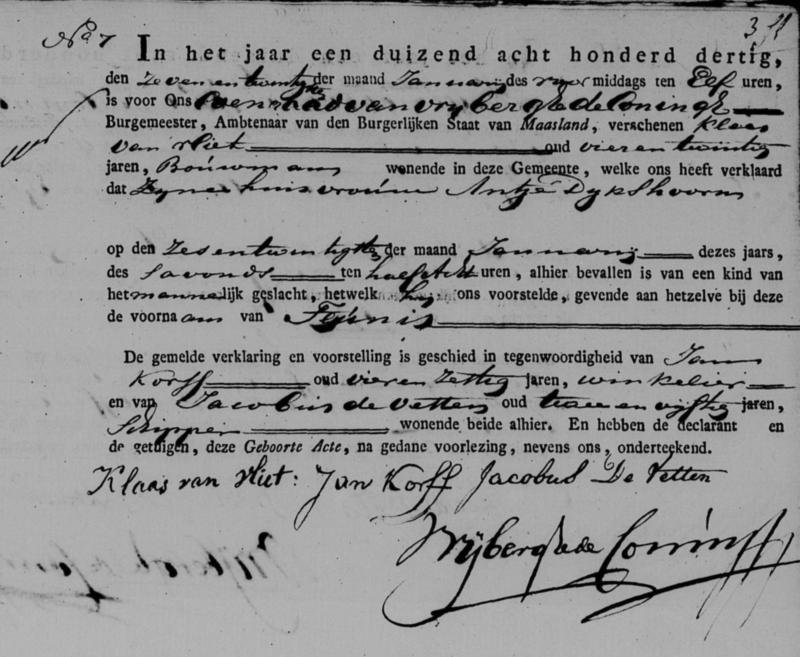 No 7
In het jaar een duizend acht honderd dertig,
den Zevenentwintigste der maand Januarij des voor middags ten Elf uren,
is voor Ons Coenraad van Vrijberghe de Coningh
Burgemeester, Ambtenaar van den Burgerlijken Staat van Maasland, verschenen Klaas
van Vliet oud vierentwintig
jaren, Bouwman wonende in deze Gemeente, welke ons heeft verklaard
dat Zijne huisvrouw Antje Dijkshoorn
op den Zesentwintigste der maand Januarij dezes jaars,
des Savonds ten half uren, alhier bevallen is van een kind van
het mannelijk geslacht, hetwelk hij ons voorstelde, gevende aan hetzelve bij deze
de voornaam van Teunis
De gemelde verklaring en voorstelling is geschied in tegenwoordigheid van Jan
Korff oud vierenzestig jaren, winkelier
en van Jacobus de Vetten oud tweeenvijftig jaren,
Schipper wonende beide alhier. En hebben de declarant en
de getuigen, deze Geboorte Acte, na gedane voorlezing, nevens ons, onderteekend.
Klaas van vliet: Jan Korff Jacobus De Vetten
Vrijberghe de Coningh